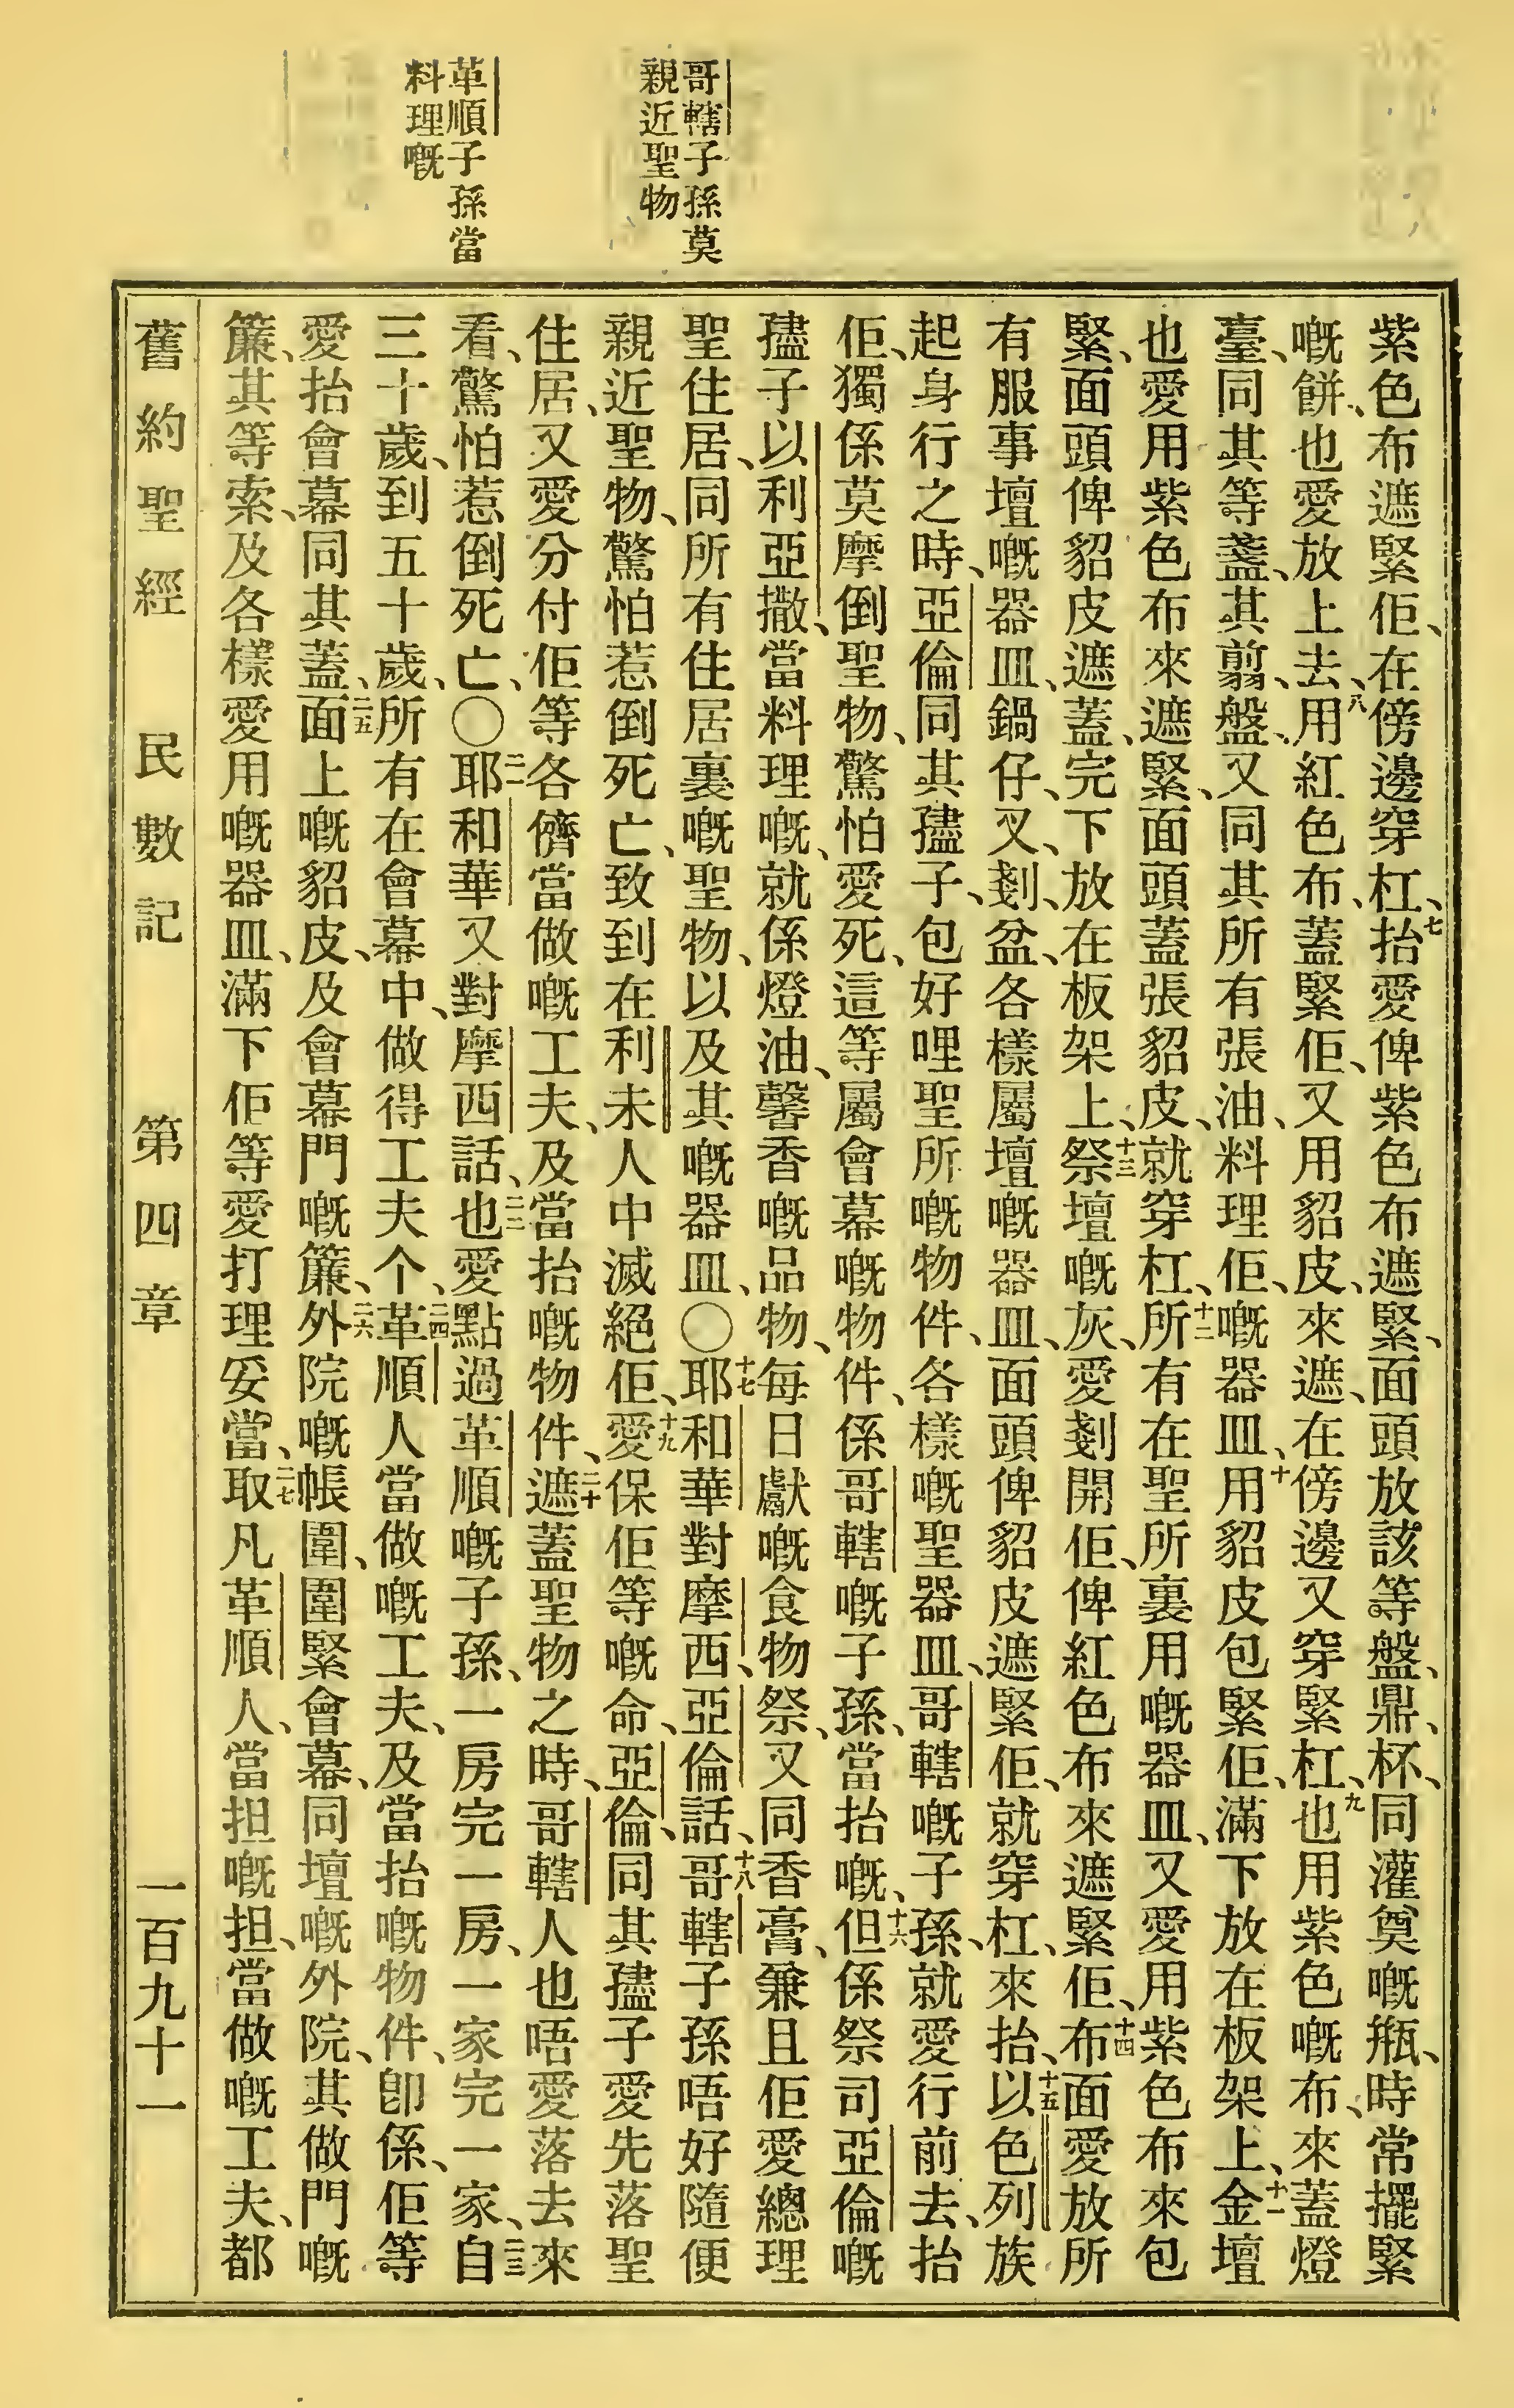 哥轄子孫莫
親近聖物
革順子孫當
料理嘅
紫色布遮緊佢、在傍邊穿杠、七抬愛俾紫色布遮緊、面頭放該等盤、鼎、杯、同灌奠嘅瓶、時常擺緊
嘅餅、也愛放上去、八用紅色布、蓋緊佢、又用貂皮、來遮、在傍邊又穿緊杠、九也用紫色嘅布、來蓋燈
臺、同其等盞、其翦、盤、又同其所有張油、料理佢、嘅器皿、十用貂皮包緊佢、滿下放在板架上、十一金壇
也愛用紫色布來遮緊、面頭蓋張貂皮、就穿杠、十二所有在聖所裏用嘅器皿、又愛用紫色布來包
緊、面頭俾貂皮遮蓋、完下放在板架上、十三祭壇嘅灰、愛剗開佢、俾紅色布來遮緊佢、十四布面愛放所
有服事壇嘅器皿、鍋仔、叉、剗、盆、各樣屬壇嘅器皿、面頭俾貂皮遮緊佢、就穿杠、來抬、十五以色列族
起身行之時、亞倫同其孻子、包好哩聖所嘅物件、各樣嘅聖器皿、哥轄嘅子孫、就愛行前去、抬
佢、獨係莫摩倒聖物、驚怕愛死、這等屬會幕嘅物件、係哥轄嘅子孫、當抬嘅、十六但係祭司亞倫嘅
孻子以利亞撒、當料理嘅、就係燈油、馨香嘅品物、每日獻嘅食物祭、又同香膏、兼且佢愛總理
聖住居、同所有住居裏嘅聖物、以及其嘅器皿、〇十七耶和華對摩西、亞倫話、十八哥轄子孫唔好隨便
親近聖物、驚怕惹倒死亡、致到在利未人中滅絕佢、十九愛保佢等嘅命、亞倫、同其孻子愛先落聖
住居、又愛分付佢等各儕當做嘅工夫、及當抬嘅物件、二十遮蓋聖物之時、哥轄人也唔愛落去來
看、驚怕惹倒死亡、〇二一耶和華又對摩西話、二二也愛點過革順嘅子孫、一房完一房、一家完一家、二三自
三十歲、到五十歲、所有在會幕中、做得工夫个、二四革順人當做嘅工夫、及當抬嘅物件、卽係、佢等
愛抬會幕同其蓋、二五面上嘅貂皮、及會幕門嘅簾、二六外院嘅帳圍、圍緊會幕、同壇嘅外院、其做門嘅
簾、其等索、及各樣愛用嘅器皿、滿下佢等愛打理妥當、二七取凡革順人、當担嘅担、當做嘅工夫、都
舊約聖經　民數記　第四章　一百九十一